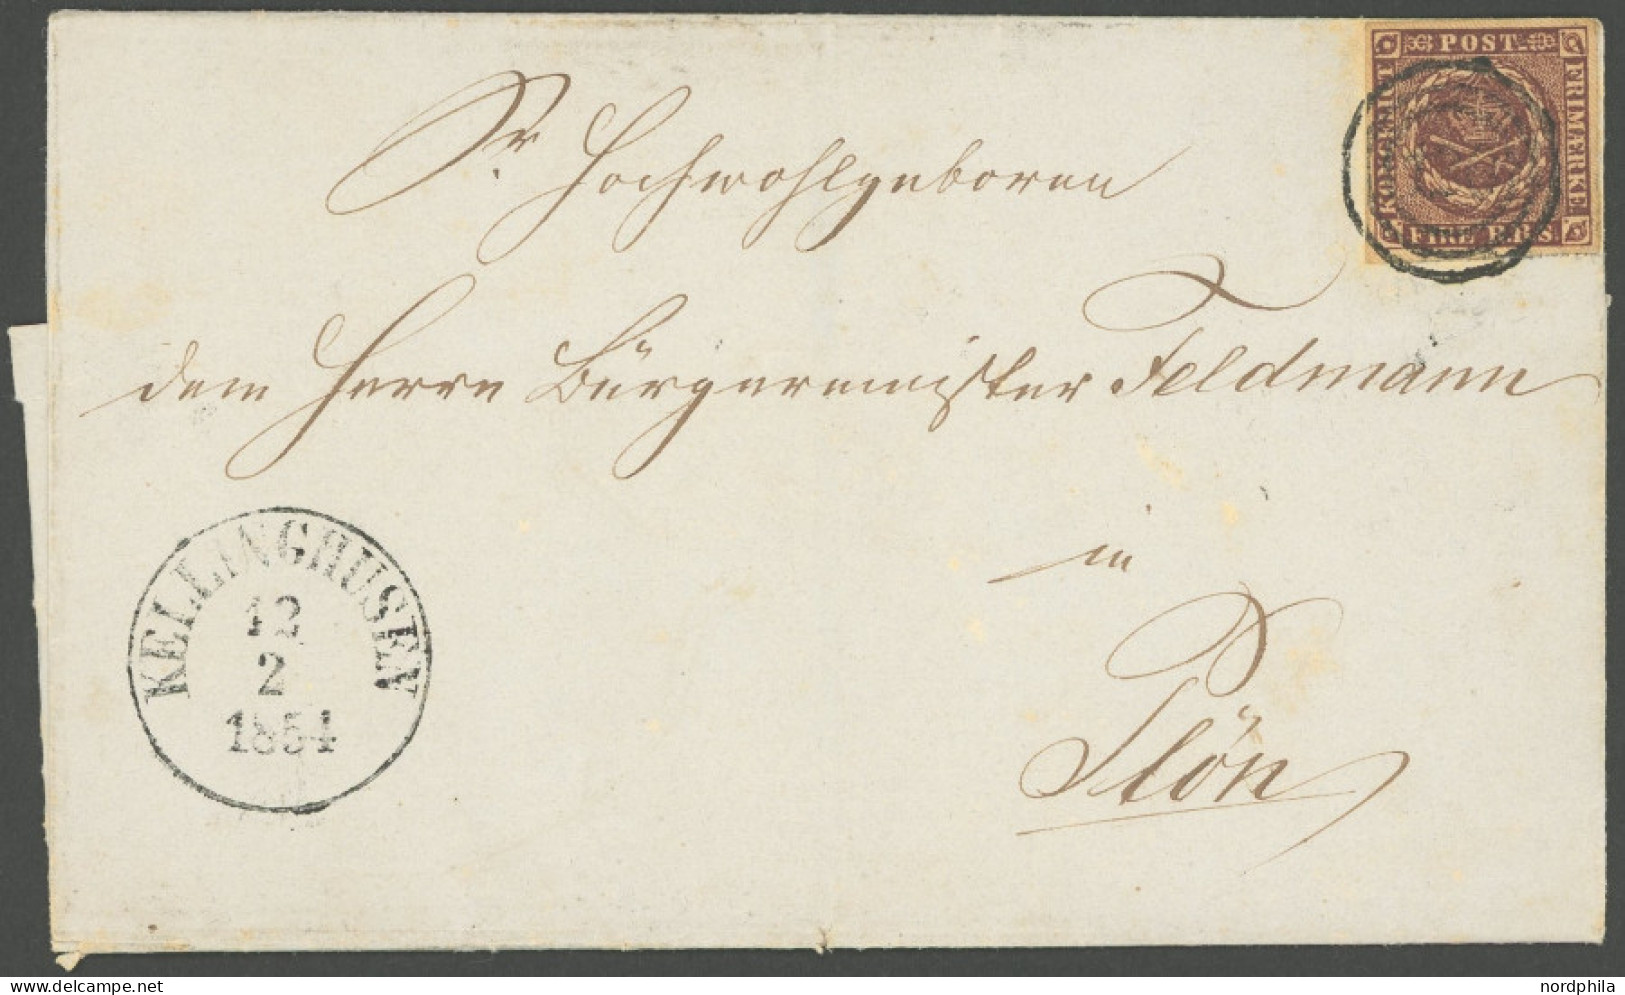 KONGELIGT POST FRIMÆRKE
FIRE R.B.S.
Sr. Hochwohlgeboren
dem Herrn Bürgermeister Feldmann
in
Plön
KELLINGHUSEN
12
2
1854
nordphila